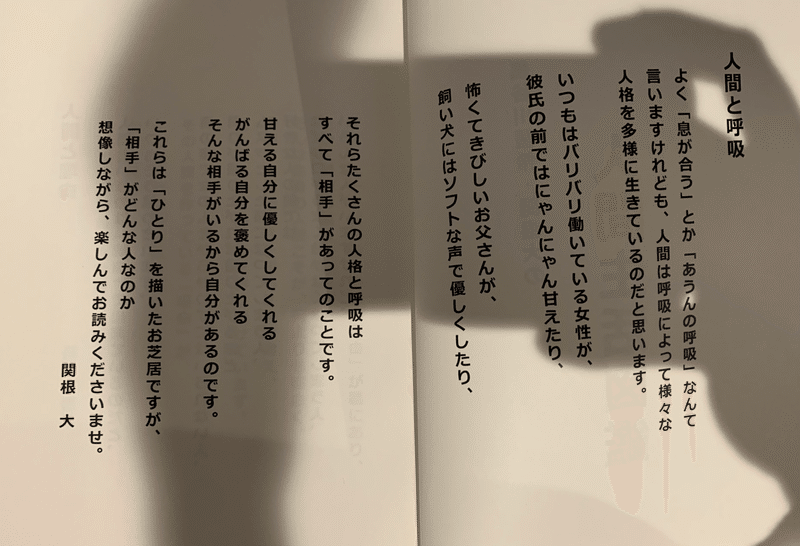 人間と呼吸
よく「息が合う」とか「あうんの呼吸」なんて
言いますけれども、人間は呼吸によって様々な
人格を多様に生きているのだと思います。
いつもはバリバリ働いている女性が、
彼氏の前ではにゃんにゃん甘えたり、
怖くてきびしいお父さんが、
飼い犬にはソフトな声で優しくしたり、
それらたくさんの人格と呼吸は
すべて「相手」があってのことです。
甘える自分に優しくしてくれる
がんばる自分を褒めてくれる
そんな相手がいるから自分があるのです。
これらは「ひとり」を描いたお芝居ですが、
「相手」がどんな人なのか
想像しながら、楽しんでお読みくださいませ。
関根 大